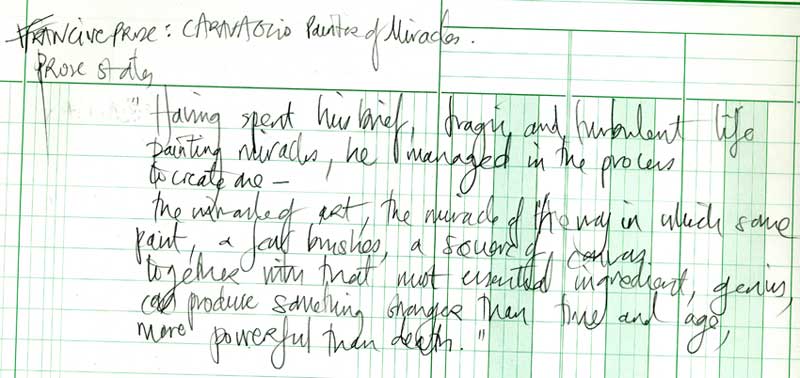 FRANCINE PROSE: CARAVAGGIO Painter of Miracles.
Prose states
"Having spent his brief, tragic, and turbulent life
painting miracles, he managed in the process
to create one –
the miracle of art, the miracle of the way in which some
paint, a few brushes, a square of canvas,
together with that most essential ingredient, genius,
can produce something stronger than time and age,
more powerful than death."